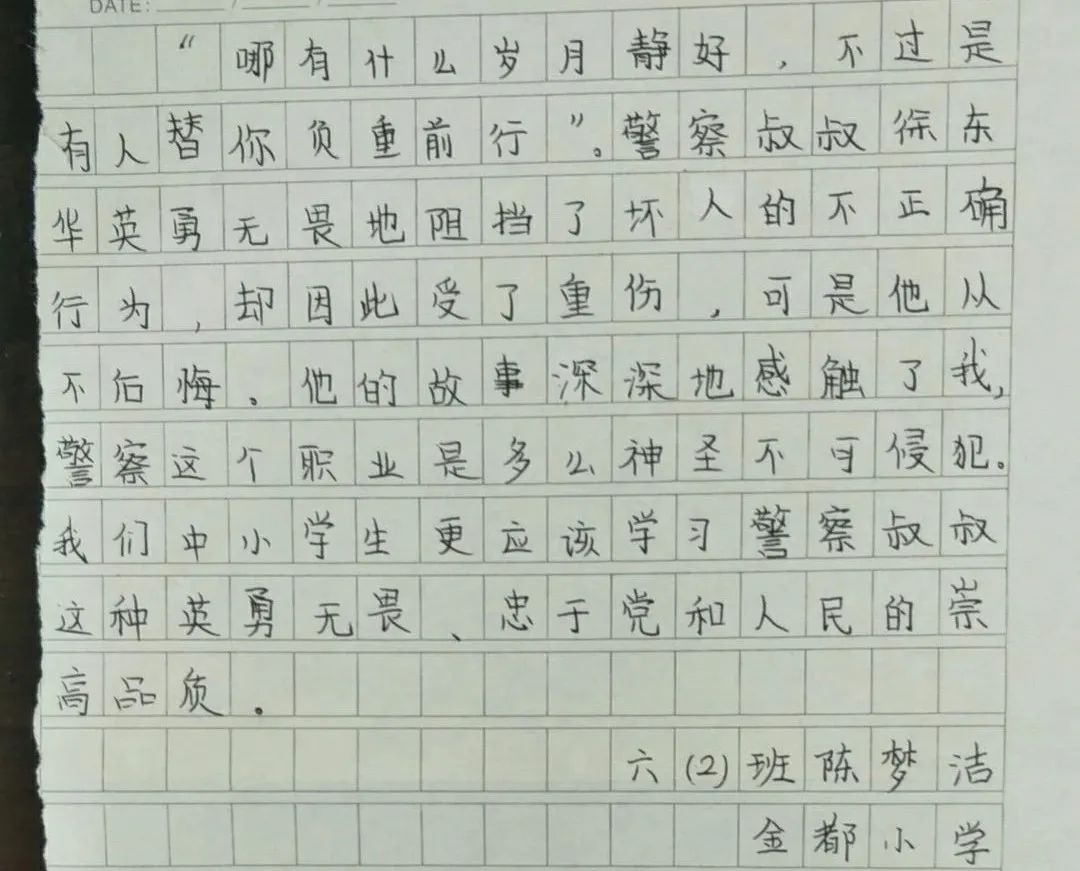 DATE: / /
“哪有什么岁月静好，不过是
有人替你负重前行”。警察叔叔徐东
华英勇无畏地阻挡了坏人的不正确
行为，却因此受了重伤，可是他从
不后悔。他的故事深深地感触了我，
警察这个职业是多么神圣不可侵犯。
我们中小学生更应该学习警察叔叔
这种英勇无畏、忠于党和人民的崇
高品质。
六(2)班陈梦洁
金都小学